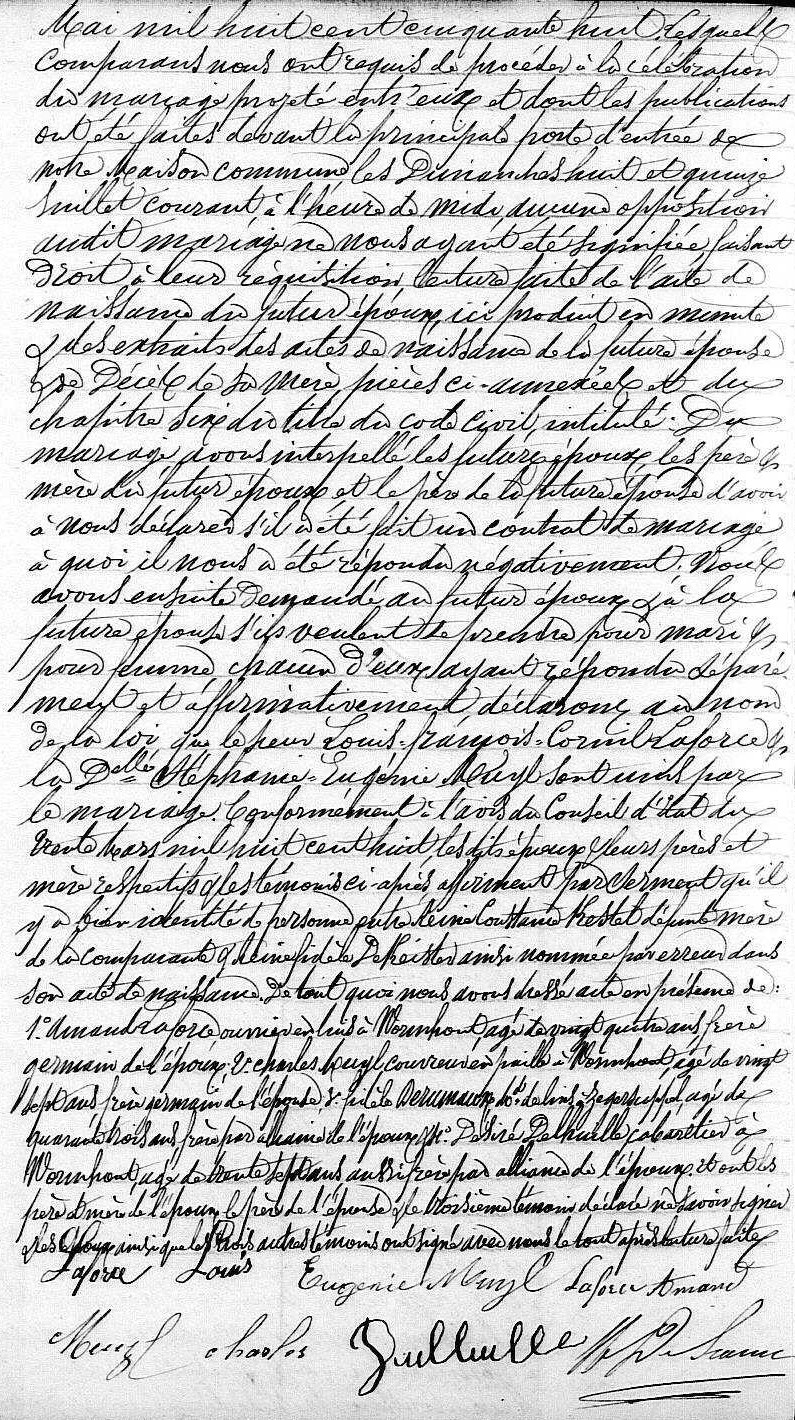 Mai mil huit cent cinquante huit. Lesquels
comparans nous ont requis de procéder à la célébration
du mariage projeté entr'eux et dont les publications
ont été faites devant la principale porte d'entrée de
notre Maison commune, les Dimanches huit et quinze
Juillet courant, à l'heure de midi, aucune opposition
audit mariage ne nous ayant été signifiée, faisant
Droit à leur réquisition, lecture faite de l'acte de
naissance du futur époux, ici produit en minute
& des extraits des actes de naissance de la future épouse
& de Décès de sa mère pièces ci-annexées et du
chapitre Six du titre du code civil, intitulé : Du
mariage, avons interpellé les futurs époux, les père &
mère du futur époux et le père de la future épouse d'avoir
à nous déclarer s'il a été fait un contrat de mariage
à quoi il nous a été répondu négativement. Nous
avons ensuite Demandé, au futur époux & à la
future épouse s'ils veulent se prendre pour mari &
pour femme, chacun D'eux ayant répondu séparé-
ment et affirmativement déclarons au nom
de la loi que le sieur Louis-françois-Cornil Laforce &
la Delle Stéphanie-Eugénie Muyl sont unis par
le mariage. Conformément à l'avis du Conseil d'état du
trente Mars mil huit cent huit, lesdits époux & leurs pères et
mère respectifs & les témoins ci-après, affirment par serment qu'il
y a bien identité de personne entre Reine Constance Kestet défunte mère
de la comparante & Reine fidèle DeKeister ainsi nommée par erreur dans
son acte de naissance. De tout quoi nous avons dressé acte en présence de :
1° Amand Laforce ouvrier en lins à Wormhout, âgé de vingt quatre ans, frère
germain de l'époux, 2° charles Muyl couvreur en paille à Wormhout, âgé de vingt
sept ans frère germain de l'épouse, 3° fidèle Derumaux md de lins à Zegerscappel, âgé de
quarante trois ans, frère par alliance de l'époux & 4° Désiré Delhuelle, cabaretier à
Wormhout, âgé de trente sept ans aussi frère par alliance de l'époux. Et ont les
père & mère de l'époux, le père de l'épouse & le troisième témoin déclaré ne savoir signer
& les époux ainsi que les trois autres témoins ont signé avec nous le tout après lecture faite
Laforce Louis Eugenie Muyl Laforce Amand
Muyl charles